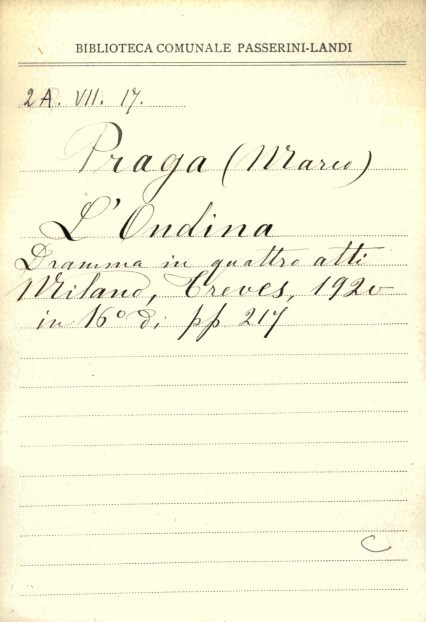 BIBLIOTECA COMUNALE PASSERINI-LANDI
2A. VII. 17.
Praga (Marco)
L'Ondina
Dramma in quattro atti
Milano, Treves, 1920
in 16° di pp 217
C